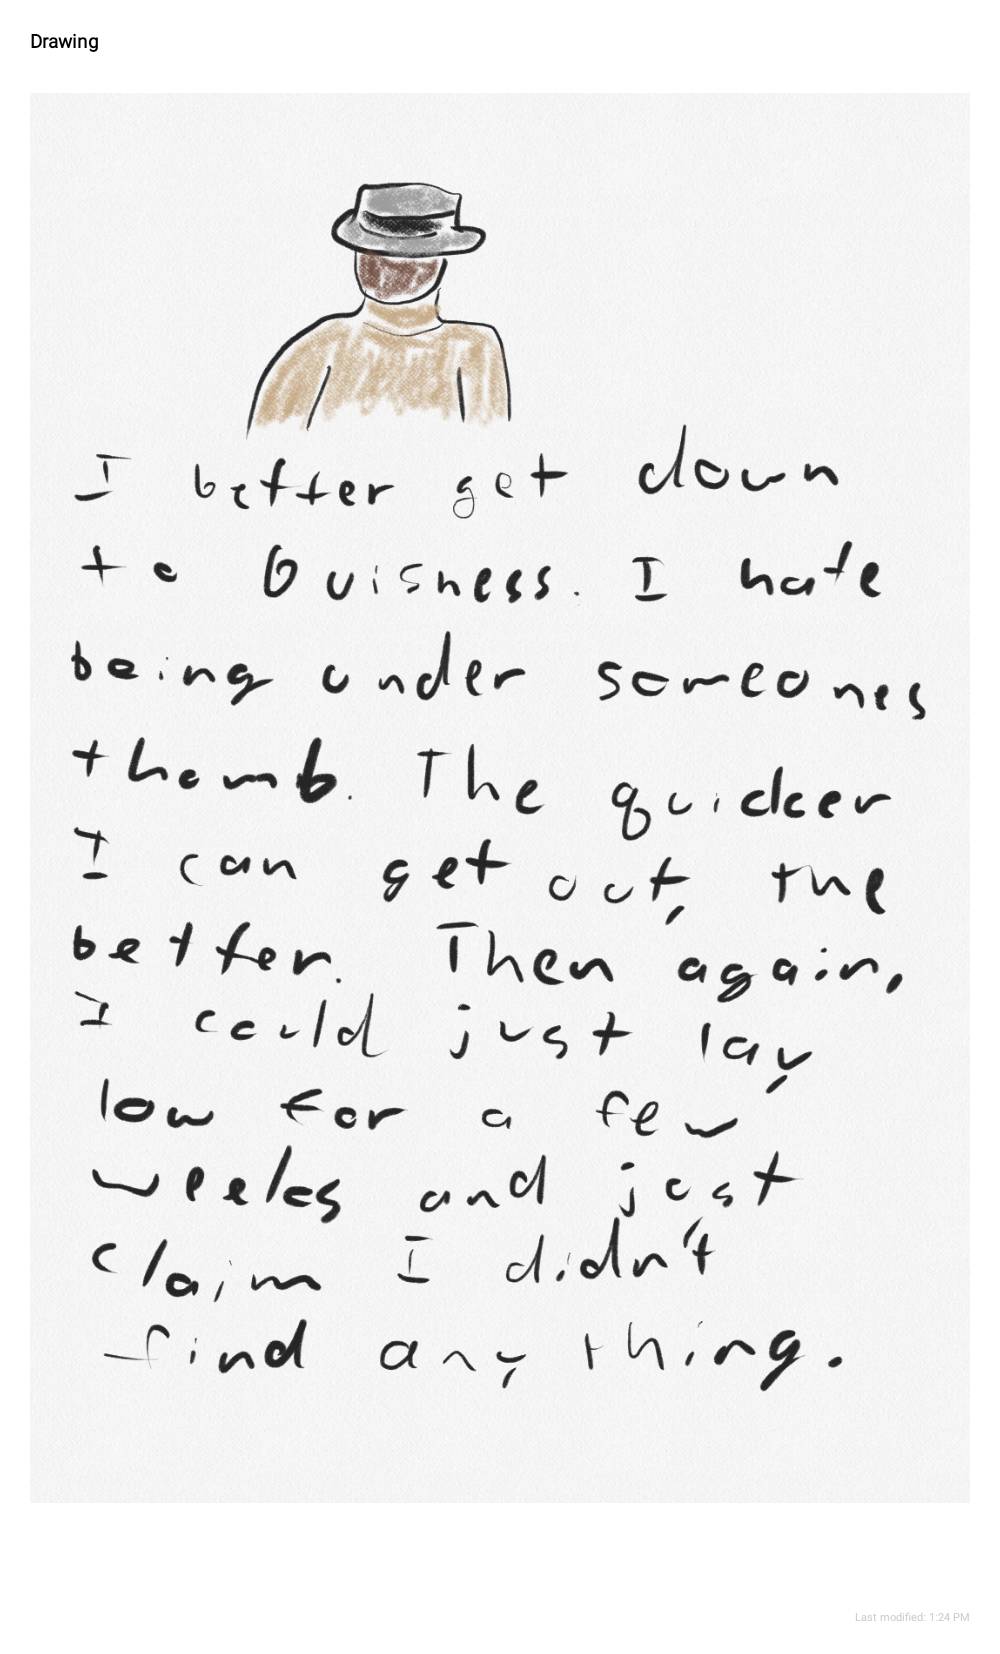 Drawing
I better get down
to buisness. I hate
being under someones
thumb. The quicker
I can get out, the
better. Then again,
I could just lay
low for a few
weeks and just
claim I didn't
find any thing.
Last modified: 1:24 PM